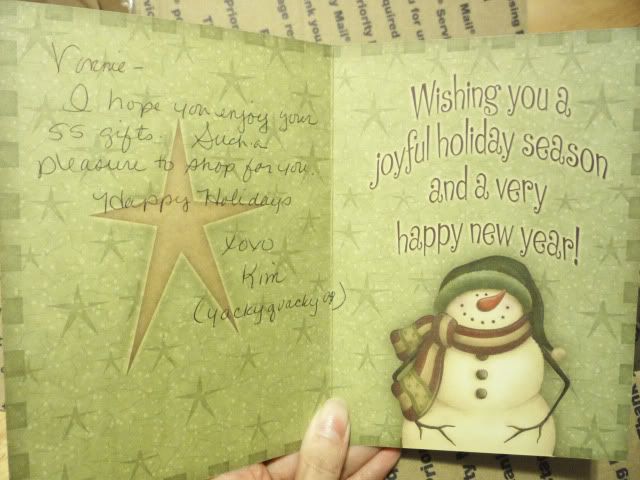 Vonnie -
I hope you enjoy your
SS gifts. Such a
pleasure to shop for you.
Happy Holidays
xoxo
Kim
Wishing you a
joyful holiday season
and a very
happy new year!